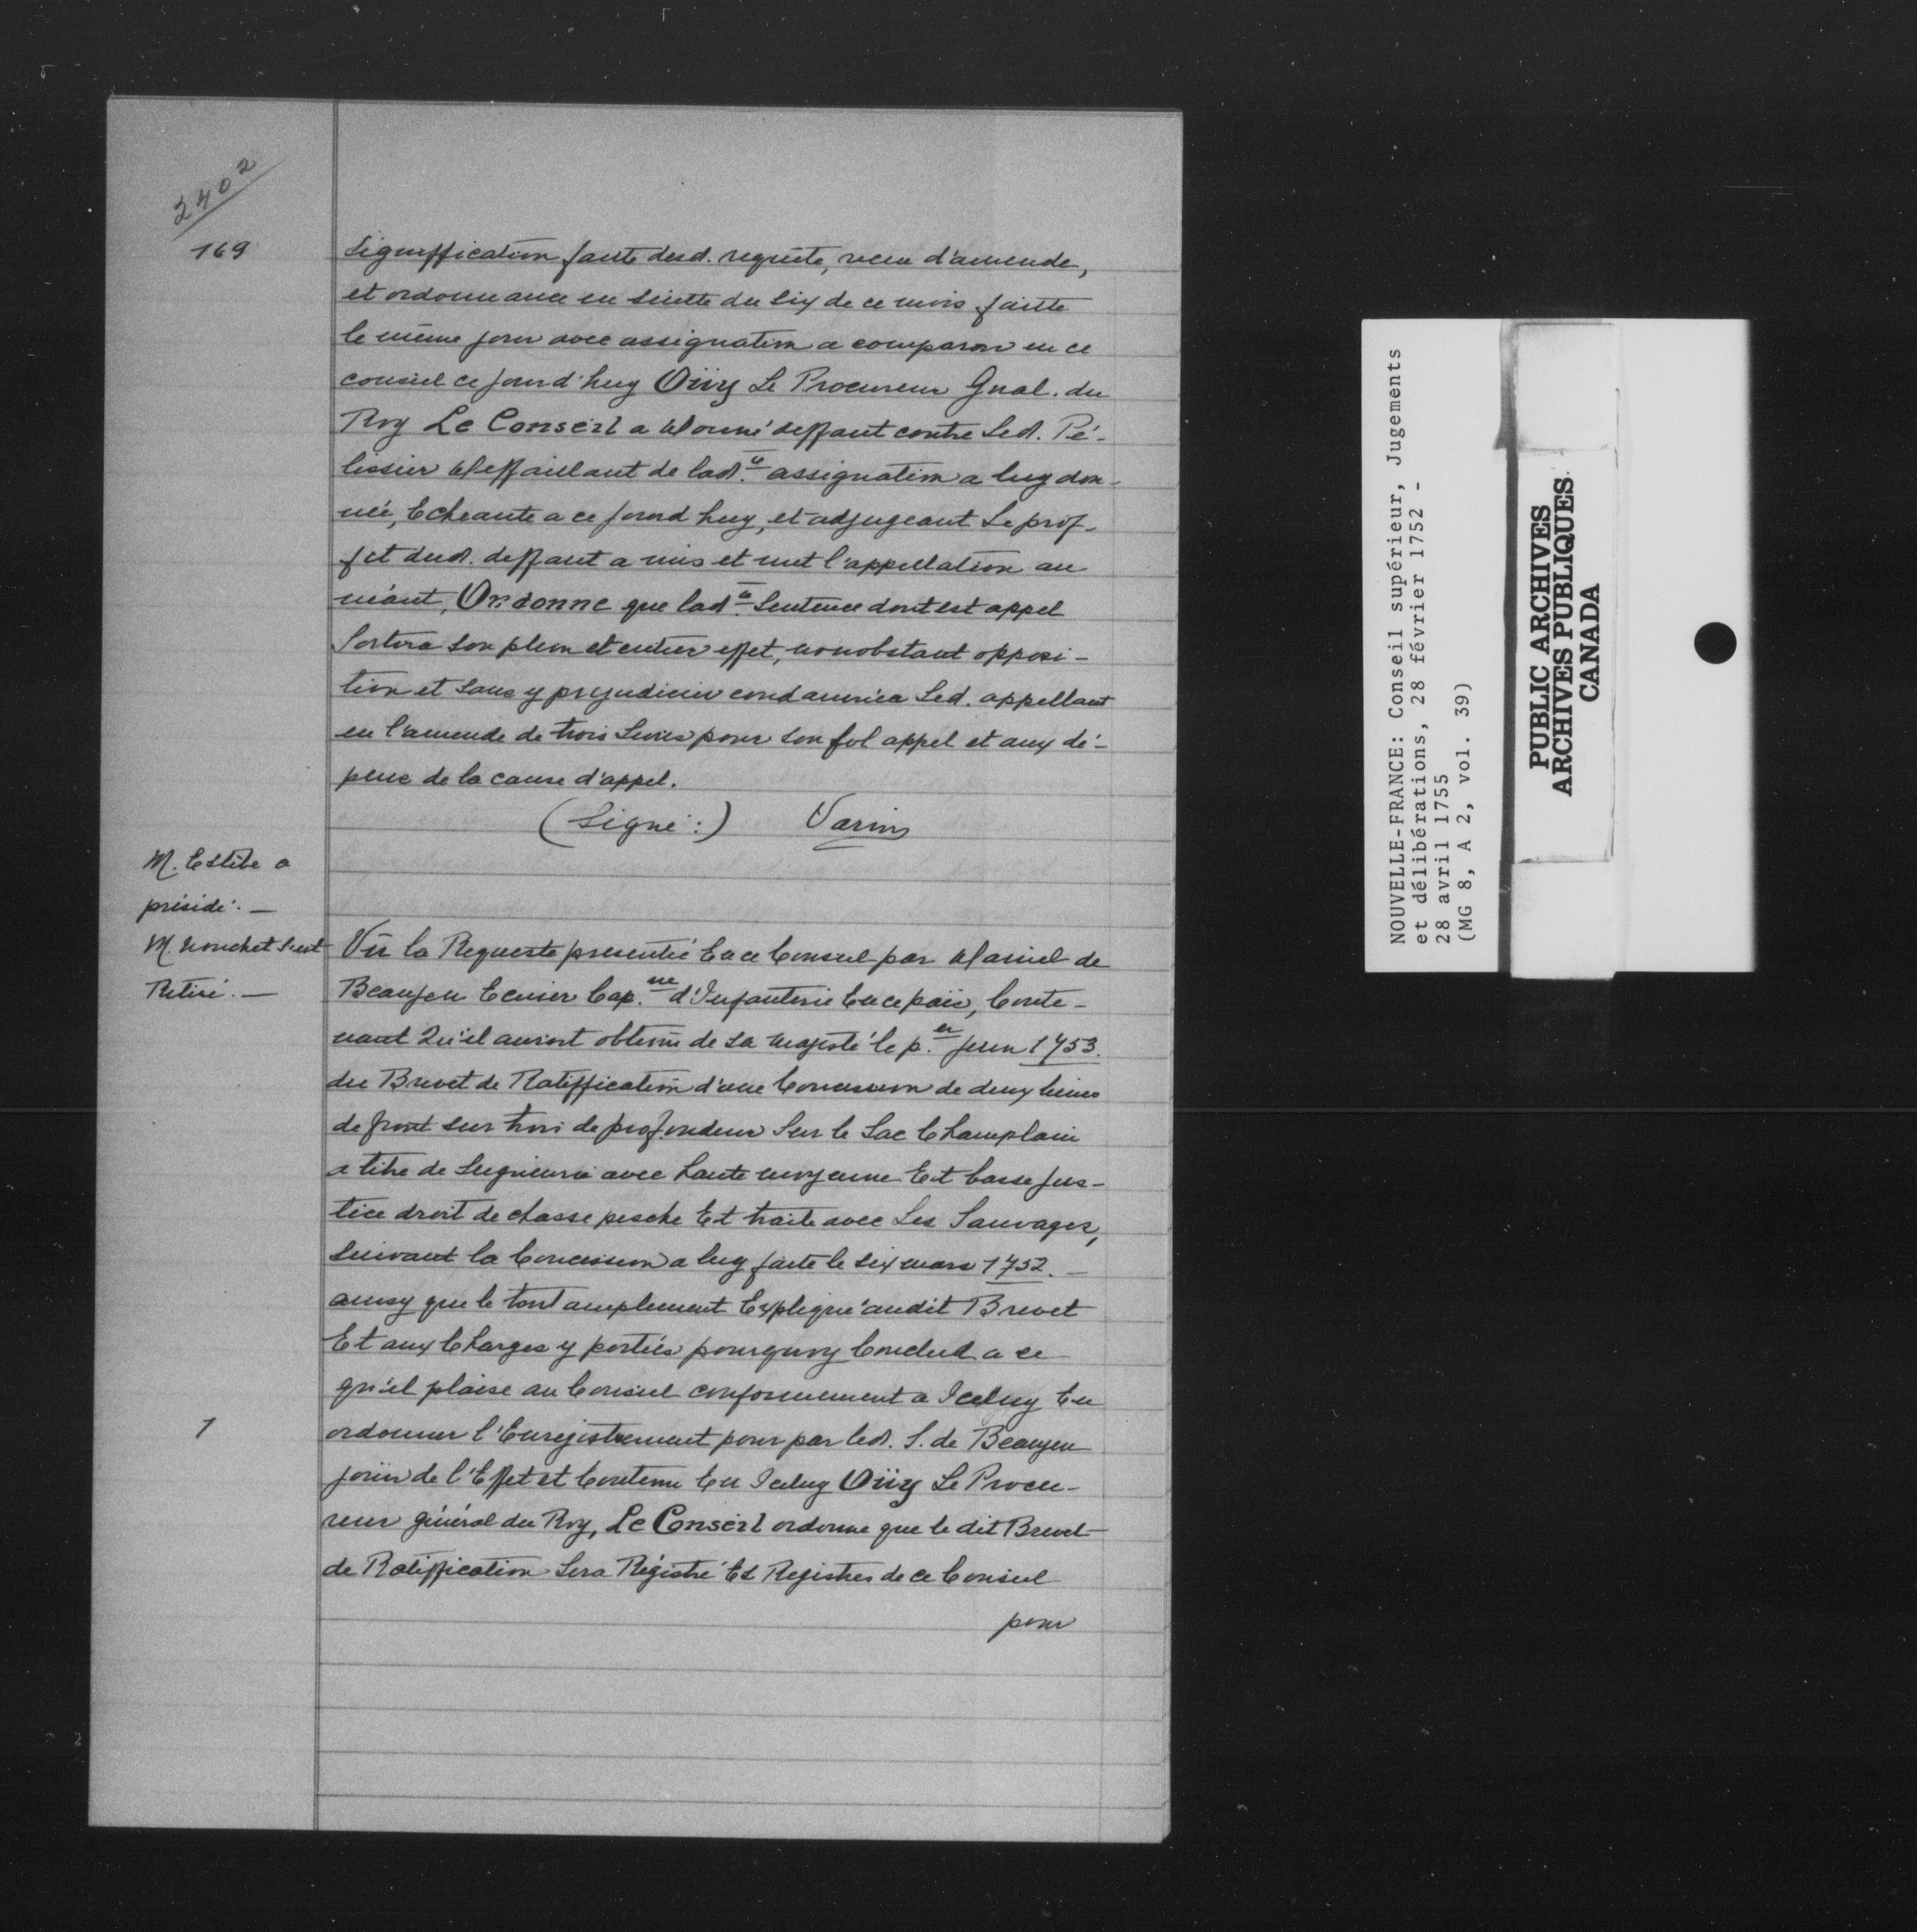 2402
169
Signiffication faite desd. requête, receu d'amende,
et ordonnance en suitte du six de ce mois faitte
le même jour avec assignation a comparoir en ce
conseil ce jourd'huy Oüy Le Procureur Gnal. du
Roy Le Conseil a donné deffaut contre Led. Pé-
lissier deffaillant de lad.e assignation a luy don-
née, Echeante a ce jourd huy, et adjugeant Le prof-
fit dud. deffaut a mis et met l'appellation au
néant, Ordonne que lad.e Sentence dont est appel
Sortira son plein et entier effet, nonobstant opposi-
tion et sans y prejudicier condamnée Led. appellant
en l'amende de trois Livres pour son fol appel et aux dé-
pens de la cause d'appel.
(Signé:) Varin
M. Estèbe a
présidé. —
M. nouchet s'est
Retiré. —
Vû la Requeste presentée En ce Conseil par Daniel de
Beaujeu Ecuier Cap.ne d'Infanterie En ce païs, Conte-
nant Qu'il auroit obtenu de sa majesté le p.er Juin 1753.
du Brevet de Ratiffication d'une Concession de deux lieues
de front sur trois de profondeur Sur le Lac Champlain
a titre de Seigneurie avec haute moyenne Et basse jus-
tice droit de chasse pesche Et traite avec Les Sauvages,
suivant la Concession a luy faite le six mars 1752. —
ainsy que le tout amplement Expliqué audit Brevet
Et aux Charges y portées pourquoy Conclud a ce
qu'il plaise au Conseil conformement a Iceluy En
1
ordonner l'Enregistrement pour par led. S. de Beaujeu
joüir de l'Effet et Contenu En Iceluy Oüy Le Procu-
reur général du Roy, Le Conseil ordonne que le dit Brevet
de Ratiffication Sera Régistré Es Registres de ce Conseil
pour
NOUVELLE-FRANCE: Conseil supérieur, Jugements
et délibérations, 28 février 1752 -
28 avril 1755
(MG 8, A 2, vol. 39)
PUBLIC ARCHIVES
ARCHIVES PUBLIQUES
CANADA